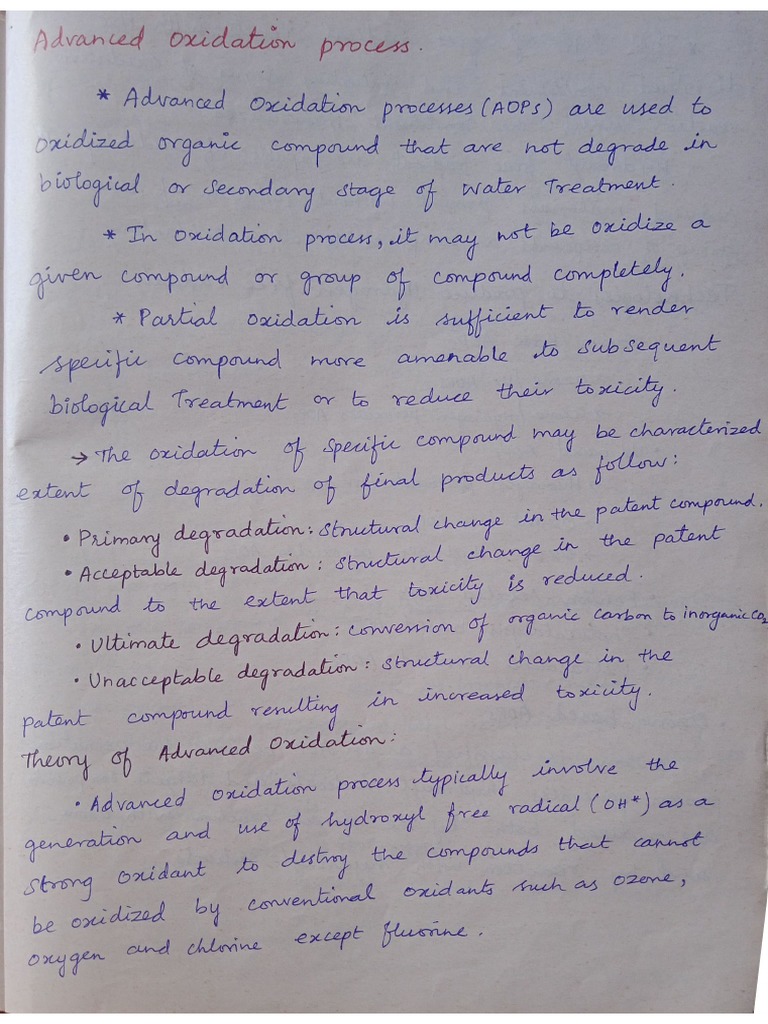 Advanced Oxidation process.
* Advanced Oxidation processes (AOPs) are used to
Oxidized organic compound that are not degrade in
biological or secondary stage of Water Treatment.
* In Oxidation process, it may not be oxidize a
given compound or group of compound completely.
* Partial Oxidation is sufficient to render
specific compound more amenable to subsequent
biological Treatment or to reduce their toxicity.
→ The oxidation of specific compound may be characterized
extent of degradation of final products as follow:
• Primary degradation: structural change in the patent compound.
• Acceptable degradation: structural change in the patent
compound to the extent that toxicity is reduced.
• Ultimate degradation: conversion of organic carbon to inorganic CO2
• Unacceptable degradation: structural change in the
patent compound resulting in increased toxicity.
Theory of Advanced Oxidation:
• Advanced oxidation process typically involve the
generation and use of hydroxyl free radical (OH*) as a
strong oxidant to destroy the compounds that cannot
be oxidized by conventional oxidants such as ozone,
oxygen and chlorine except fluorine.